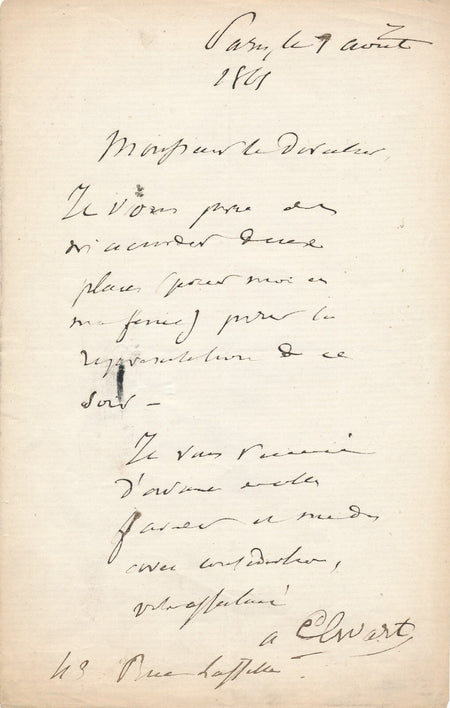 Paris, le 9 août
1861
Monsieur le Directeur,
Je vous prie de
m'accorder deux
places (pour moi et
ma femme) pour la
représentation de ce
soir —
Je vous remercie
d'avance de cette
faveur et suis
avec considération,
votre affectionné
a Elwart
43 Rue Laffitte